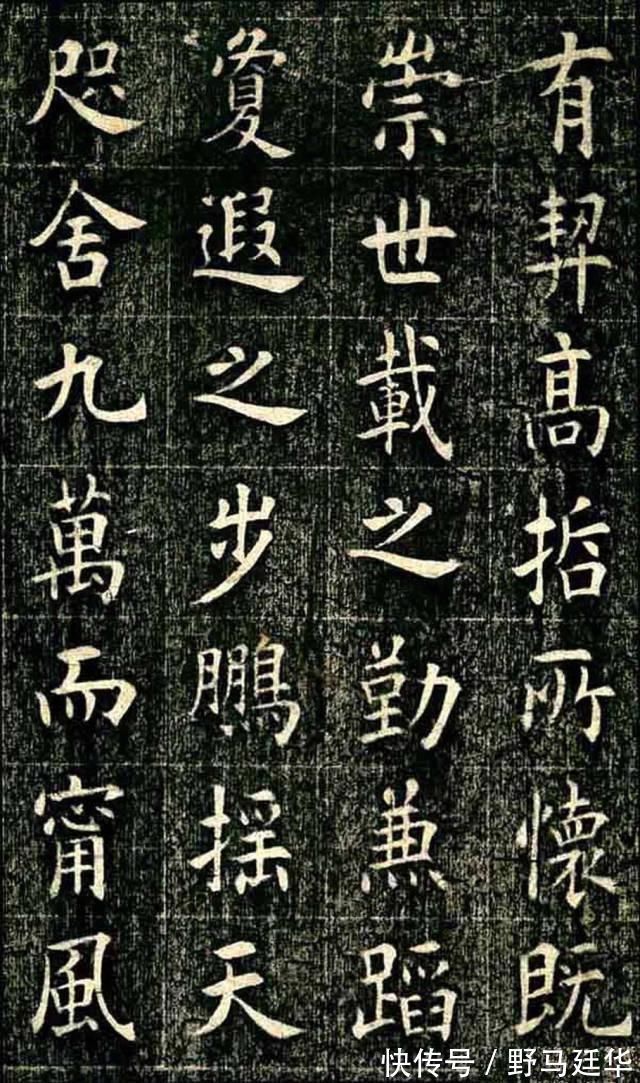 有契高哲所懷既
崇世載之勤兼蹈
夐遐之步鵬搖天
咫舍九萬而甯風
快传号 / 野马廷华